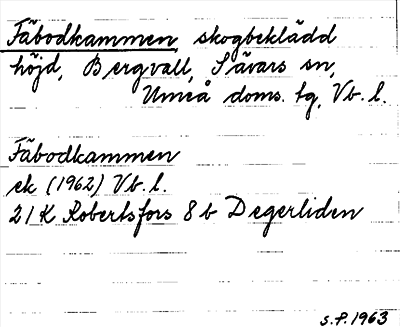 Fäbodkammen, skogbeklädd
höjd, Bergvall, Sävars sn,
Umeå doms. tg, Vb. l.
Fäbodkammen
ek (1962) Vb. l.
21 K Robertsfors 8 b Degerliden
S.P. 1963